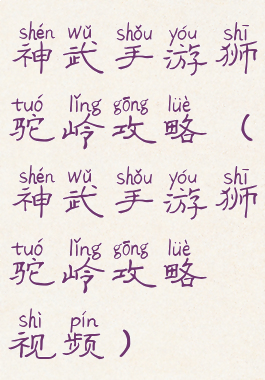 shén wǔ shǒu yóu shī
神武手游狮
tuó lǐng gōng lüè
驼岭攻略（
shén wǔ shǒu yóu shī
神武手游狮
tuó lǐng gōng lüè
驼岭攻略
shì pín
视频）